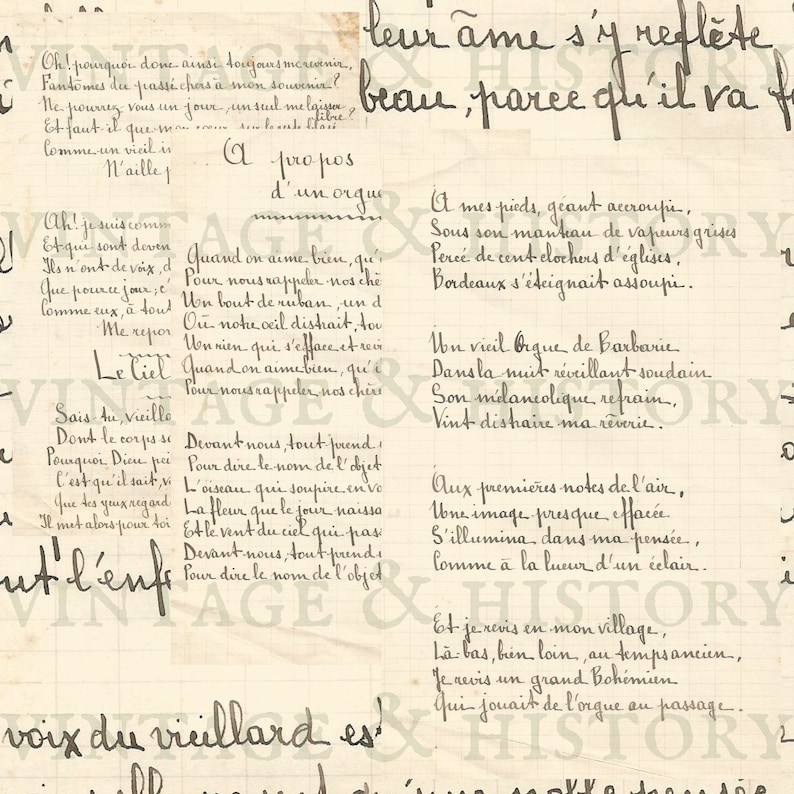 leur âme s'y reflète
beau, parce qu'il va
Oh! pourquoi donc ainsi toujours me revenir,
Fantômes du passé chers à mon souvenir?
Ne pourrez-vous un jour, un seul me laisser
libre?
Et faut-il que mon
Comme un vieil
N'aille
Ah! je suis comm
Et qui sont deven
Ils n'ont de voix, d
Que pour ce jour; c'
Comme eux, à tout
Me repor
Le Ciel
Sais-tu, vieilla
Dont le corps s
Pourquoi Dieu
C'est qu'il sait, v
Que tes yeux regard
Il met alors pour toi
A propos
d'un orgue
Quand on aime bien, qu'
Pour nous rappeler nos chè
Un bout de ruban, un d
Où notre œil distrait, tou
Un rien qui s'efface et revi
Quand on aime bien, qu'
Pour nous rappeler nos chère
Devant nous, tout prend
Pour dire le nom de l'objet
L'oiseau qui soupire en vo
La fleur que le jour naissa
Et le vent du ciel qui pas
Devant nous, tout prend
Pour dire le nom de l'objet
A mes pieds, géant accroupi,
Sous son manteau de vapeurs grises
Percé de cent clochers d'églises,
Bordeaux s'éteignait assoupi.
Un vieil Orgue de Barbarie
Dans la nuit réveillant soudain
Son mélancolique refrain,
Vint distraire ma rêverie.
Aux premières notes de l'air,
Une image presque effacée
S'illumina dans ma pensée,
Comme à la lueur d'un éclair.
Et je revis en mon village,
Là-bas, bien loin, au temps ancien,
Je revis un grand Bohémien
Qui jouait de l'orgue au passage.
ut l'enf
voix du vieillard es
VINTAGE & HISTORY
VINTAGE & HISTORY
VINTAGE & HISTORY
VINTAGE & HISTORY
VINTAGE & HISTORY